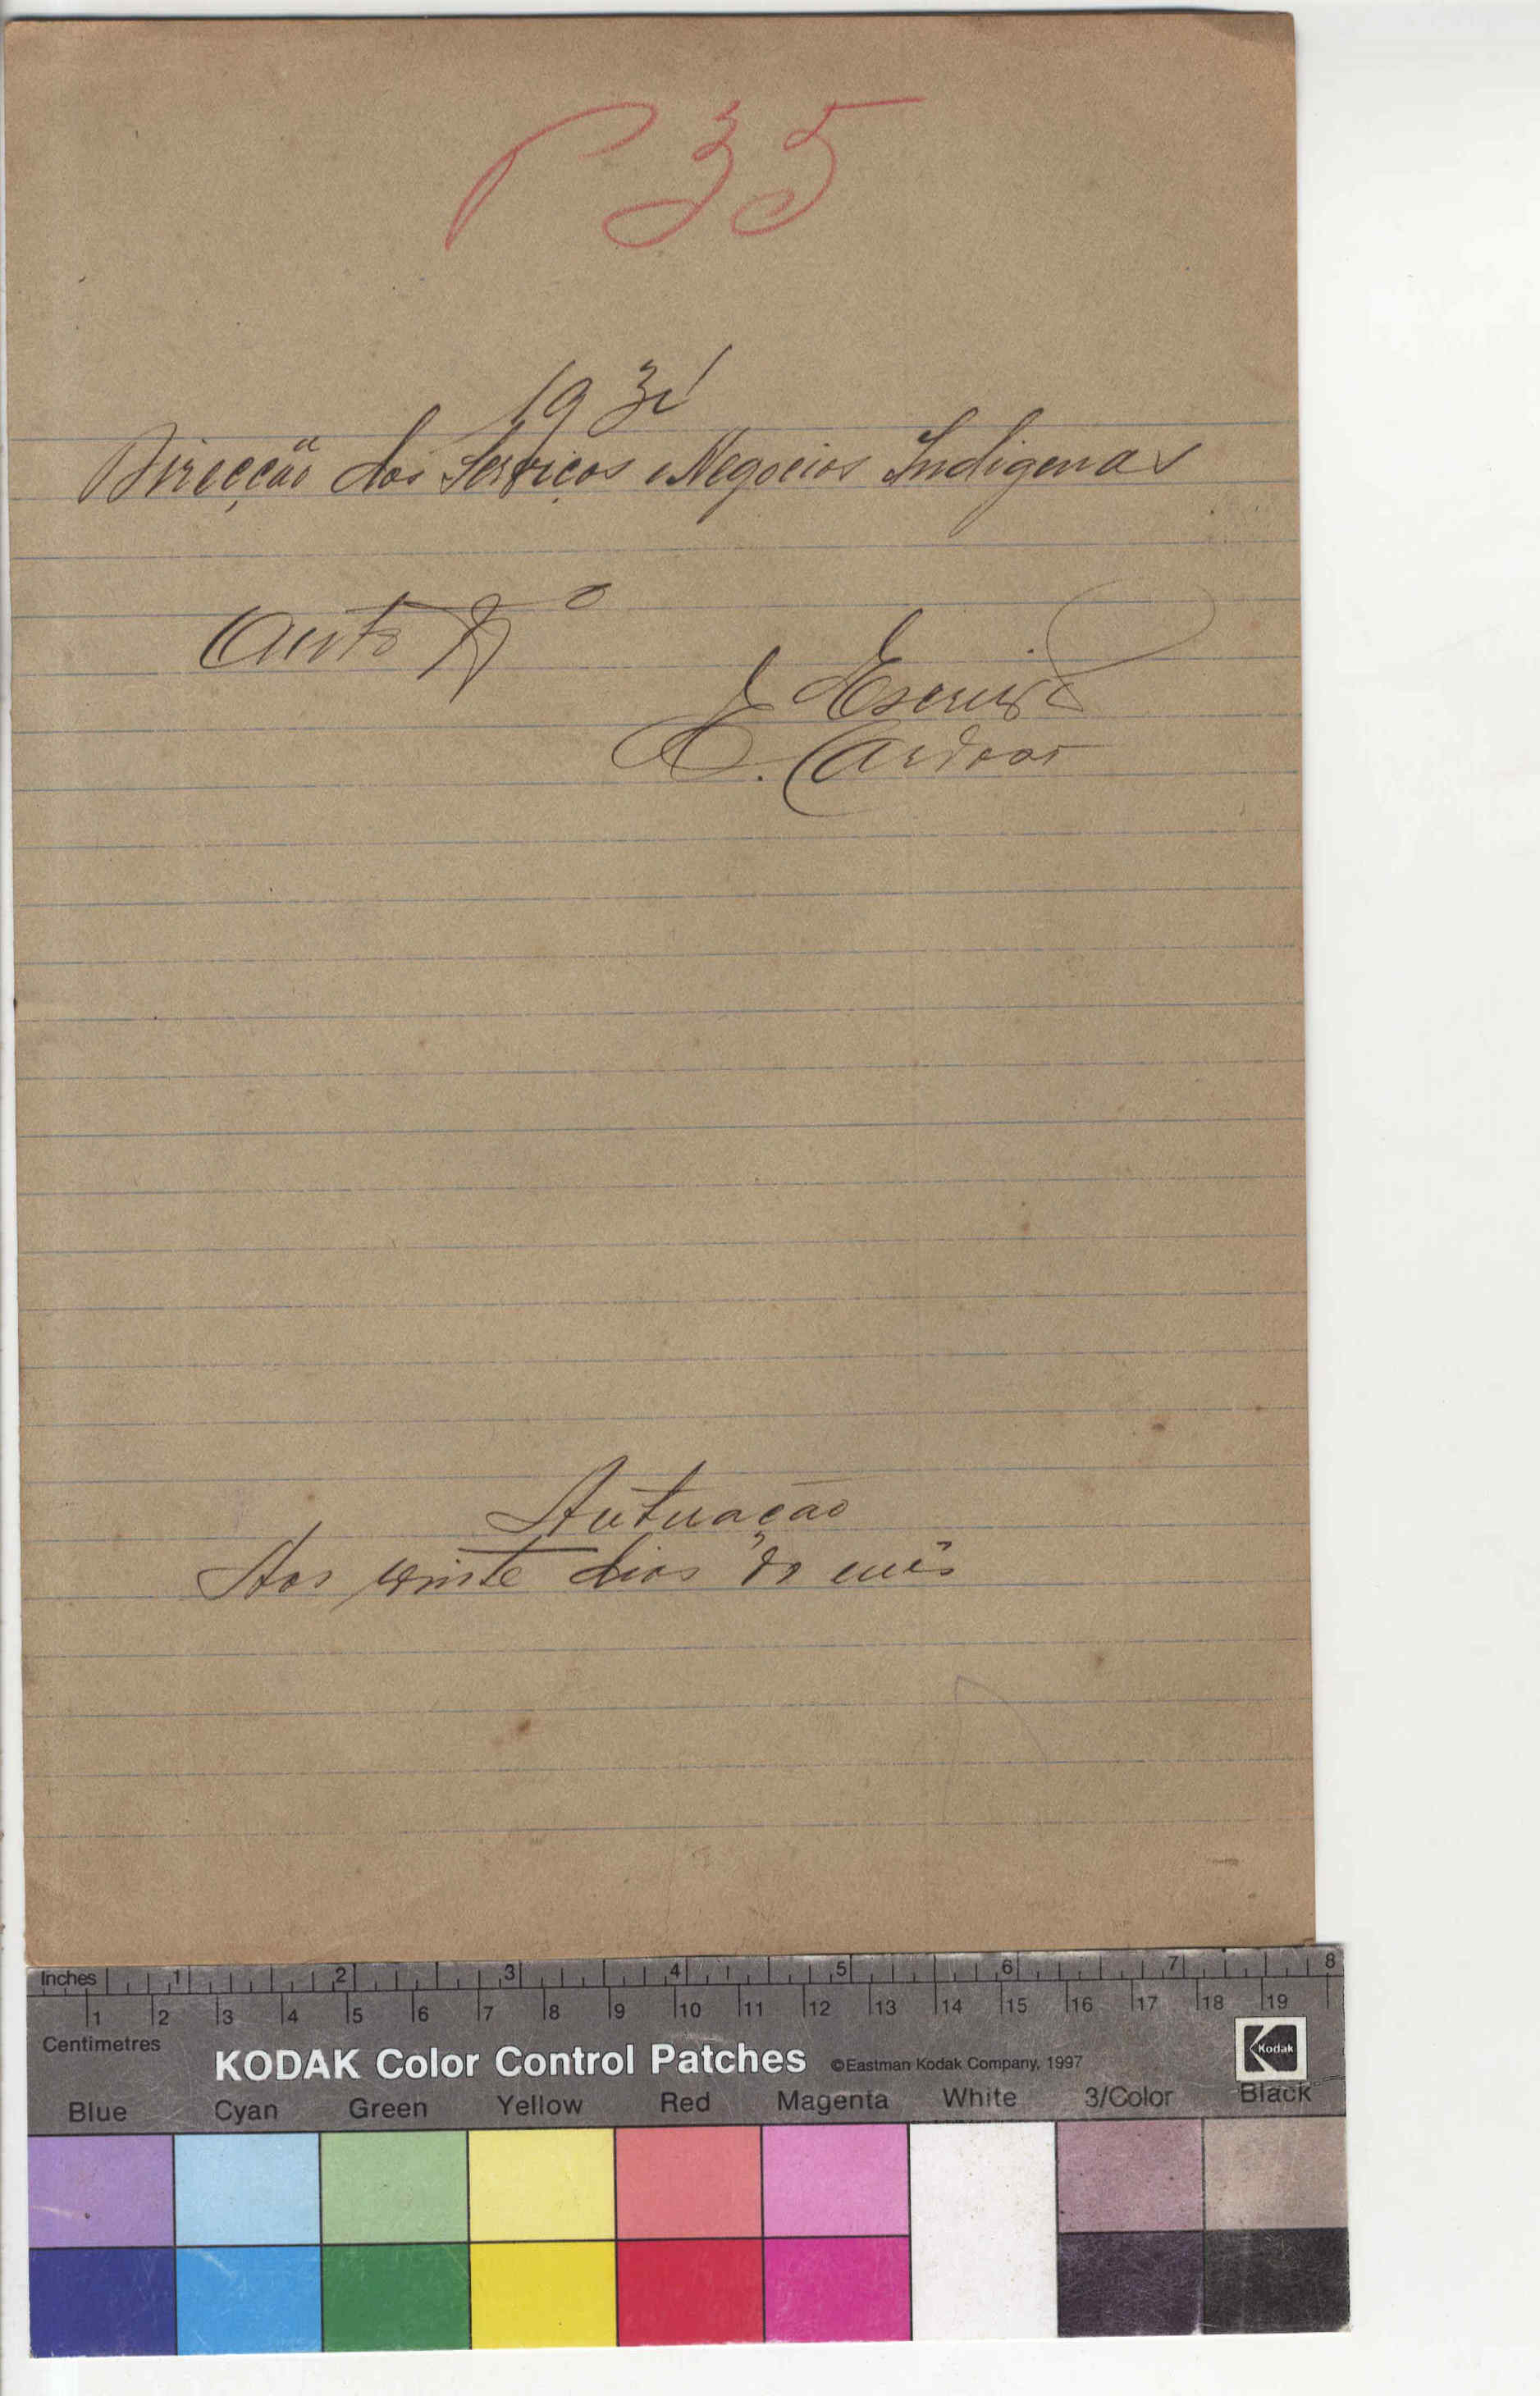 P 35
193
Direcção dos Serviços e Negocios Indigenas
Auto Nº
O Escrivão
E. Cardoso
Autuação
Aos vinte dias do mês
Inches 1 2 3 4 5 6 7 8
1 2 3 4 5 6 7 8 9 10 11 12 13 14 15 16 17 18 19
Centimetres
KODAK Color Control Patches ©Eastman Kodak Company, 1997 Kodak
Blue Cyan Green Yellow Red Magenta White 3/Color Black